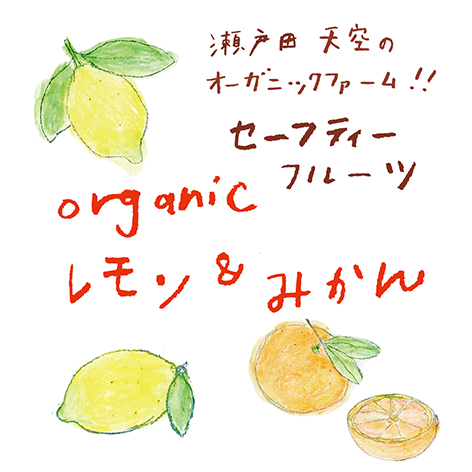 瀬戸田 天空の
オーガニックファーム!!
セーフティー
フルーツ
organic
レモン&みかん